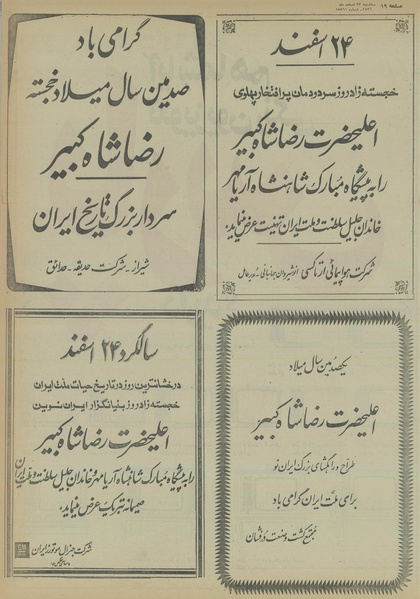 صفحه ۱۹
۲۴ اسفند
خجسته زادروز سردودمان پرافتخار پهلوی
اعلیحضرت رضاشاه کبیر
را به پیشگاه مبارک شاهنشاه آریامهر
خاندان جلیل سلطنت و ملت ایران تهنیت عرض مینماید.
شرکت هواپیمائی ارتاکسی
گرامی باد
صدمین سال میلاد خجسته
رضاشاه کبیر
سردار بزرگ تاریخ ایران
شیراز - شرکت حدیقه - حدائق
یکصدمین سال میلاد
اعلیحضرت رضاشاه کبیر
طراح و راهگشای بزرگ ایران نو
برای ملت ایران گرامی باد
مجتمع کشت و صنعت
سالگرد ۲۴ اسفند
درخشانترین روز در تاریخ حیات ملت ایران
خجسته زادروز بنیانگزار ایران نوین
اعلیحضرت رضاشاه کبیر
را به پیشگاه مبارک شاهنشاه آریامهر و خاندان جلیل سلطنت و ملت ایران
صمیمانه تبریک عرض مینماید.
شرکت جنرال موتورز ایران
GM